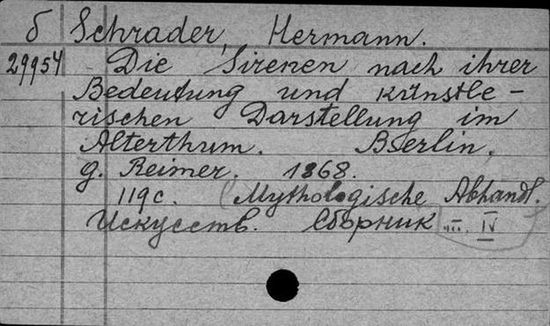 б Schrader, Hermann.
29954 Die Sirenen nach ihrer
Bedeutung und künstle-
rischen Darstellung im
Alterthum. Berlin,
g. Reimer. 1868.
119 c. (Mythologische Abhandl.
Искусств. Сборник III. IV